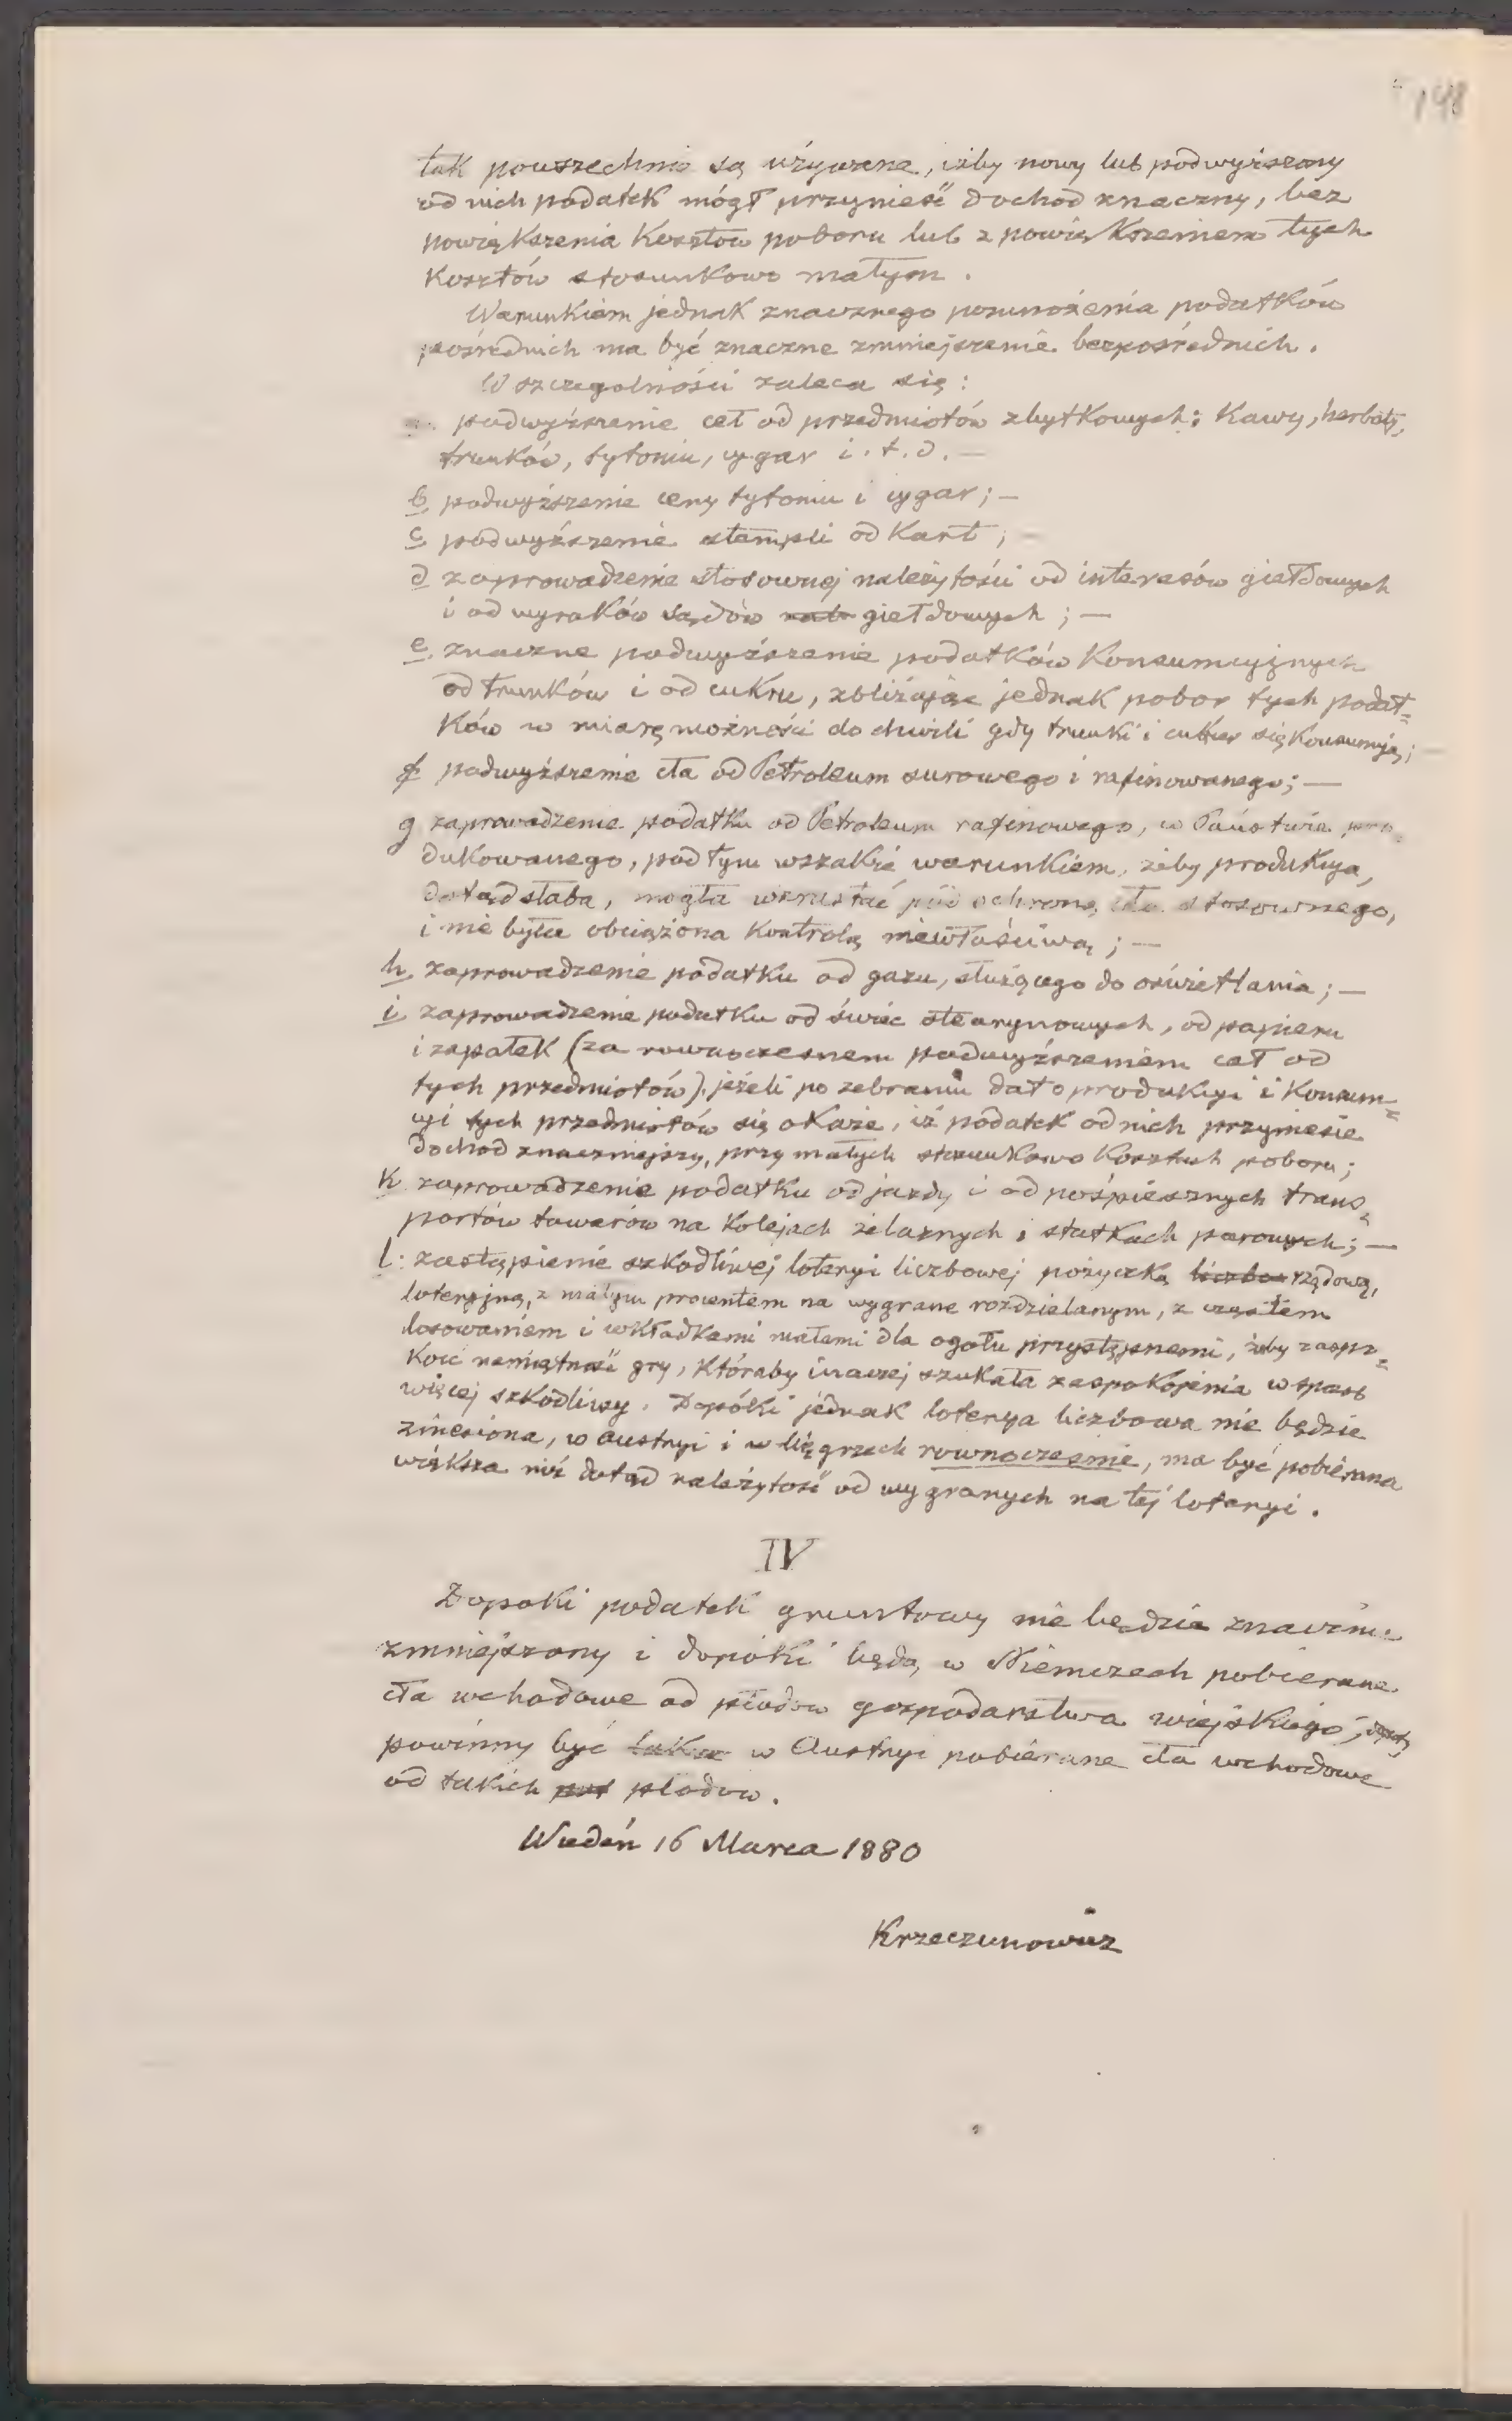 148
tak powszechnie są używane, iżby nowy lub podwyższony
od nich podatek mógł przynieść dochód znaczny, bez
powiększenia kosztów poboru lub z powiększeniem tych
kosztów stosunkowo małym.
Warunkiem jednak znacznego pomnożenia podatków
pośrednich ma być znaczne zmniejszenie bezpośrednich.
W szczególności zaleca się:
podwyższenie ceł od przedmiotów zbytkowych: kawy, herbaty,
trunków, tytoniu, cygar i.t.d. —
b, podwyższenie ceny tytoniu i cygar; —
c, podwyższenie stempli od kart;
d zaprowadzenie stosownej należytości od interesów giełdowych
i od wyroków sądów giełdowych; —
e, znaczne podwyższenie podatków konsumcyjnych
od trunków i od cukru, zbliżając jednak pobor tych podat=
ków w miarę możności do chwili gdy trunki i cukier się konsumują; —
f podwyższenie cła od Petroleum surowego i rafinowanego; —
g zaprowadzenie podatku od Petroleum rafinowego, w Państwie pro=
dukowanego, pod tym wszakże warunkiem, żeby produkcya,
dotąd słaba, mogła wzrastać pod ochroną cła stosownego,
i nie była obciążona kontrolą niewłaściwą; —
h, zaprowadzenie podatku od gazu, służącego do oświetlania; —
i, zaprowadzenie podatku od świec stearynowych, od papieru
i zapałek (za rownoczesnem podwyższeniem ceł od
tych przedmiotów), jeżeli po zebraniu dat o produkcyi i konsum=
cyi tych przedmiotów się okaże, iż podatek od nich przyniesie
dochod znaczniejszy, przy małych stosunkowo kosztach poboru;
k zaprowadzenie podatku od jazdy i od pośpiesznych trans=
portów towarów na kolejach żelaznych i statkach parowych; —
l: zastąpienie szkodliwej loteryi liczbowej pożyczką liczbo rządową,
loteryjną, z małym procentem na wygrane rozdzielanym, z częstem
losowaniem i wkładkami małemi dla ogółu przystępnemi, żeby zaspo=
koić namiętność gry, któraby inaczej szukała zaspokojenia w sposób
więcej szkodliwy. Dopóki jednak loterya liczbowa nie będzie
zniesiona, w Austryi i w Węgrzech rownocześnie, ma być pobierana
większa niż dotąd należytość od wygranych na tej loteryi.
IV
Dopoki podatek gruntowy nie będzie znacznie
zmniejszony i dopóki będą w Niemczech pobierane
cła wchodowe od płodow gospodarstwa wiejskiego,
powinny być także w Austryi pobierane cła wchodowe
od takich płodow.
Wiedeń 16 Marca 1880
Krzeczunowicz